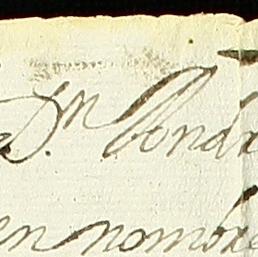 Dn. Andr
en nombre